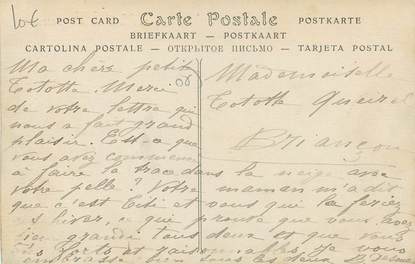 10€
POST CARD Carte Postale POSTKARTE
BRIEFKAART — POSTKAART
CARTOLINA POSTALE — ОТКРЫТОЕ ПИСЬМО — TARJETA POSTAL
Ma chère petite
Tototte. Merci
de votre lettre qui
nous a fait grand
plaisir. Est-ce que
vous avez commencé
à faire la trace dans la neige avec
votre pelle? Votre maman m'a dit
que c'est Titi et vous qui la feriez
hiver, ce qui prouve que vous avez
bien grandi tous deux et que vous
forts et raisonnables. Je vous
embrasse bien tous les deux
Mademoiselle
Tototte
Briançon
05